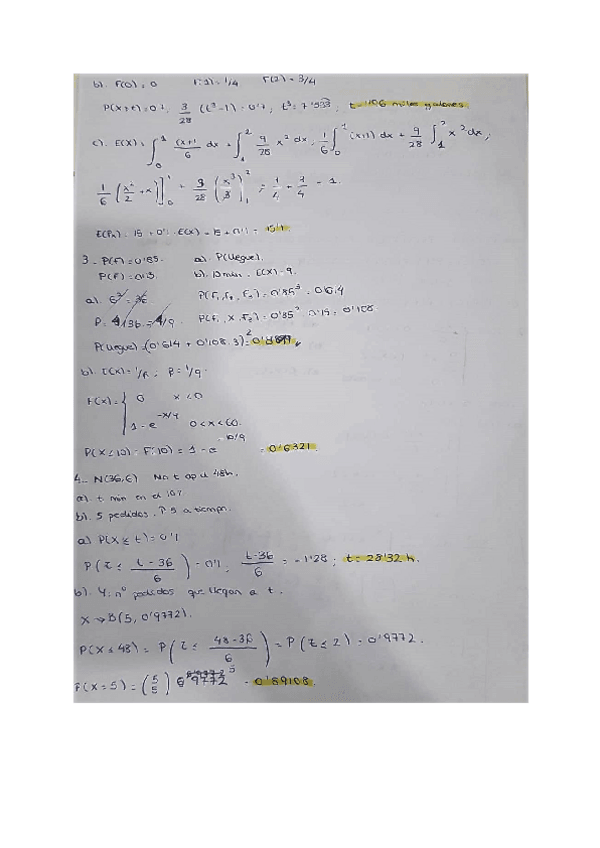 b). F(0)=0 F(1)=1/4 F(2)=3/4
P(X<t)=0'7; 3/28 (t³-1)=0'7; t³=7'533; t=
c). E(X)= ∫₀¹ (x+1)/6 dx + ∫₁² 9/28 x² dx, 1/6 ∫₀¹ (x+1) dx + 9/28 ∫₁² x² dx;
1/6 (x²/2 + x)]₀¹ + 9/28 (x³/3)₁² ; 1/4 + 3/4 = 1.
= 15 + 0'1 · E(X) = 15 + 0'1 = 15'1
3.- P(F)=0'85. a). P(llegue).
b). 10 min. E(X)=9.
a). 6²=36 = 0'85³ = 0'614
P= 4/36 = 1/9. = 0'85² · 0'15 = 0'108
P(llegue)=(0'614 + 0'108·3)² =
b). E(X)=1/β; β=1/9.
F(x)= { 0 x<0
1-e^(-x/9) 0<x<60.
P(X≤10)=F(10)=1-e^(-10/9) = 0'6321.
4.- N(36,6) No t op d 48h.
a). t min en el 10%
b). 5 pedidos. P 5 a tiempo.
a) P(X≤t)=0'1
P(Z≤ (t-36)/6) = 0'1, (t-36)/6 = -1'28; t=28'32 h.
b). Y: nº pedidos que llegan a t.
X→B(5, 0'9772).
P(X≤48) = P(Z≤ (48-36)/6) = P(Z≤2)=0'9772.
P(X=5) = (5 5) 0'9772⁵ = 0'89108.